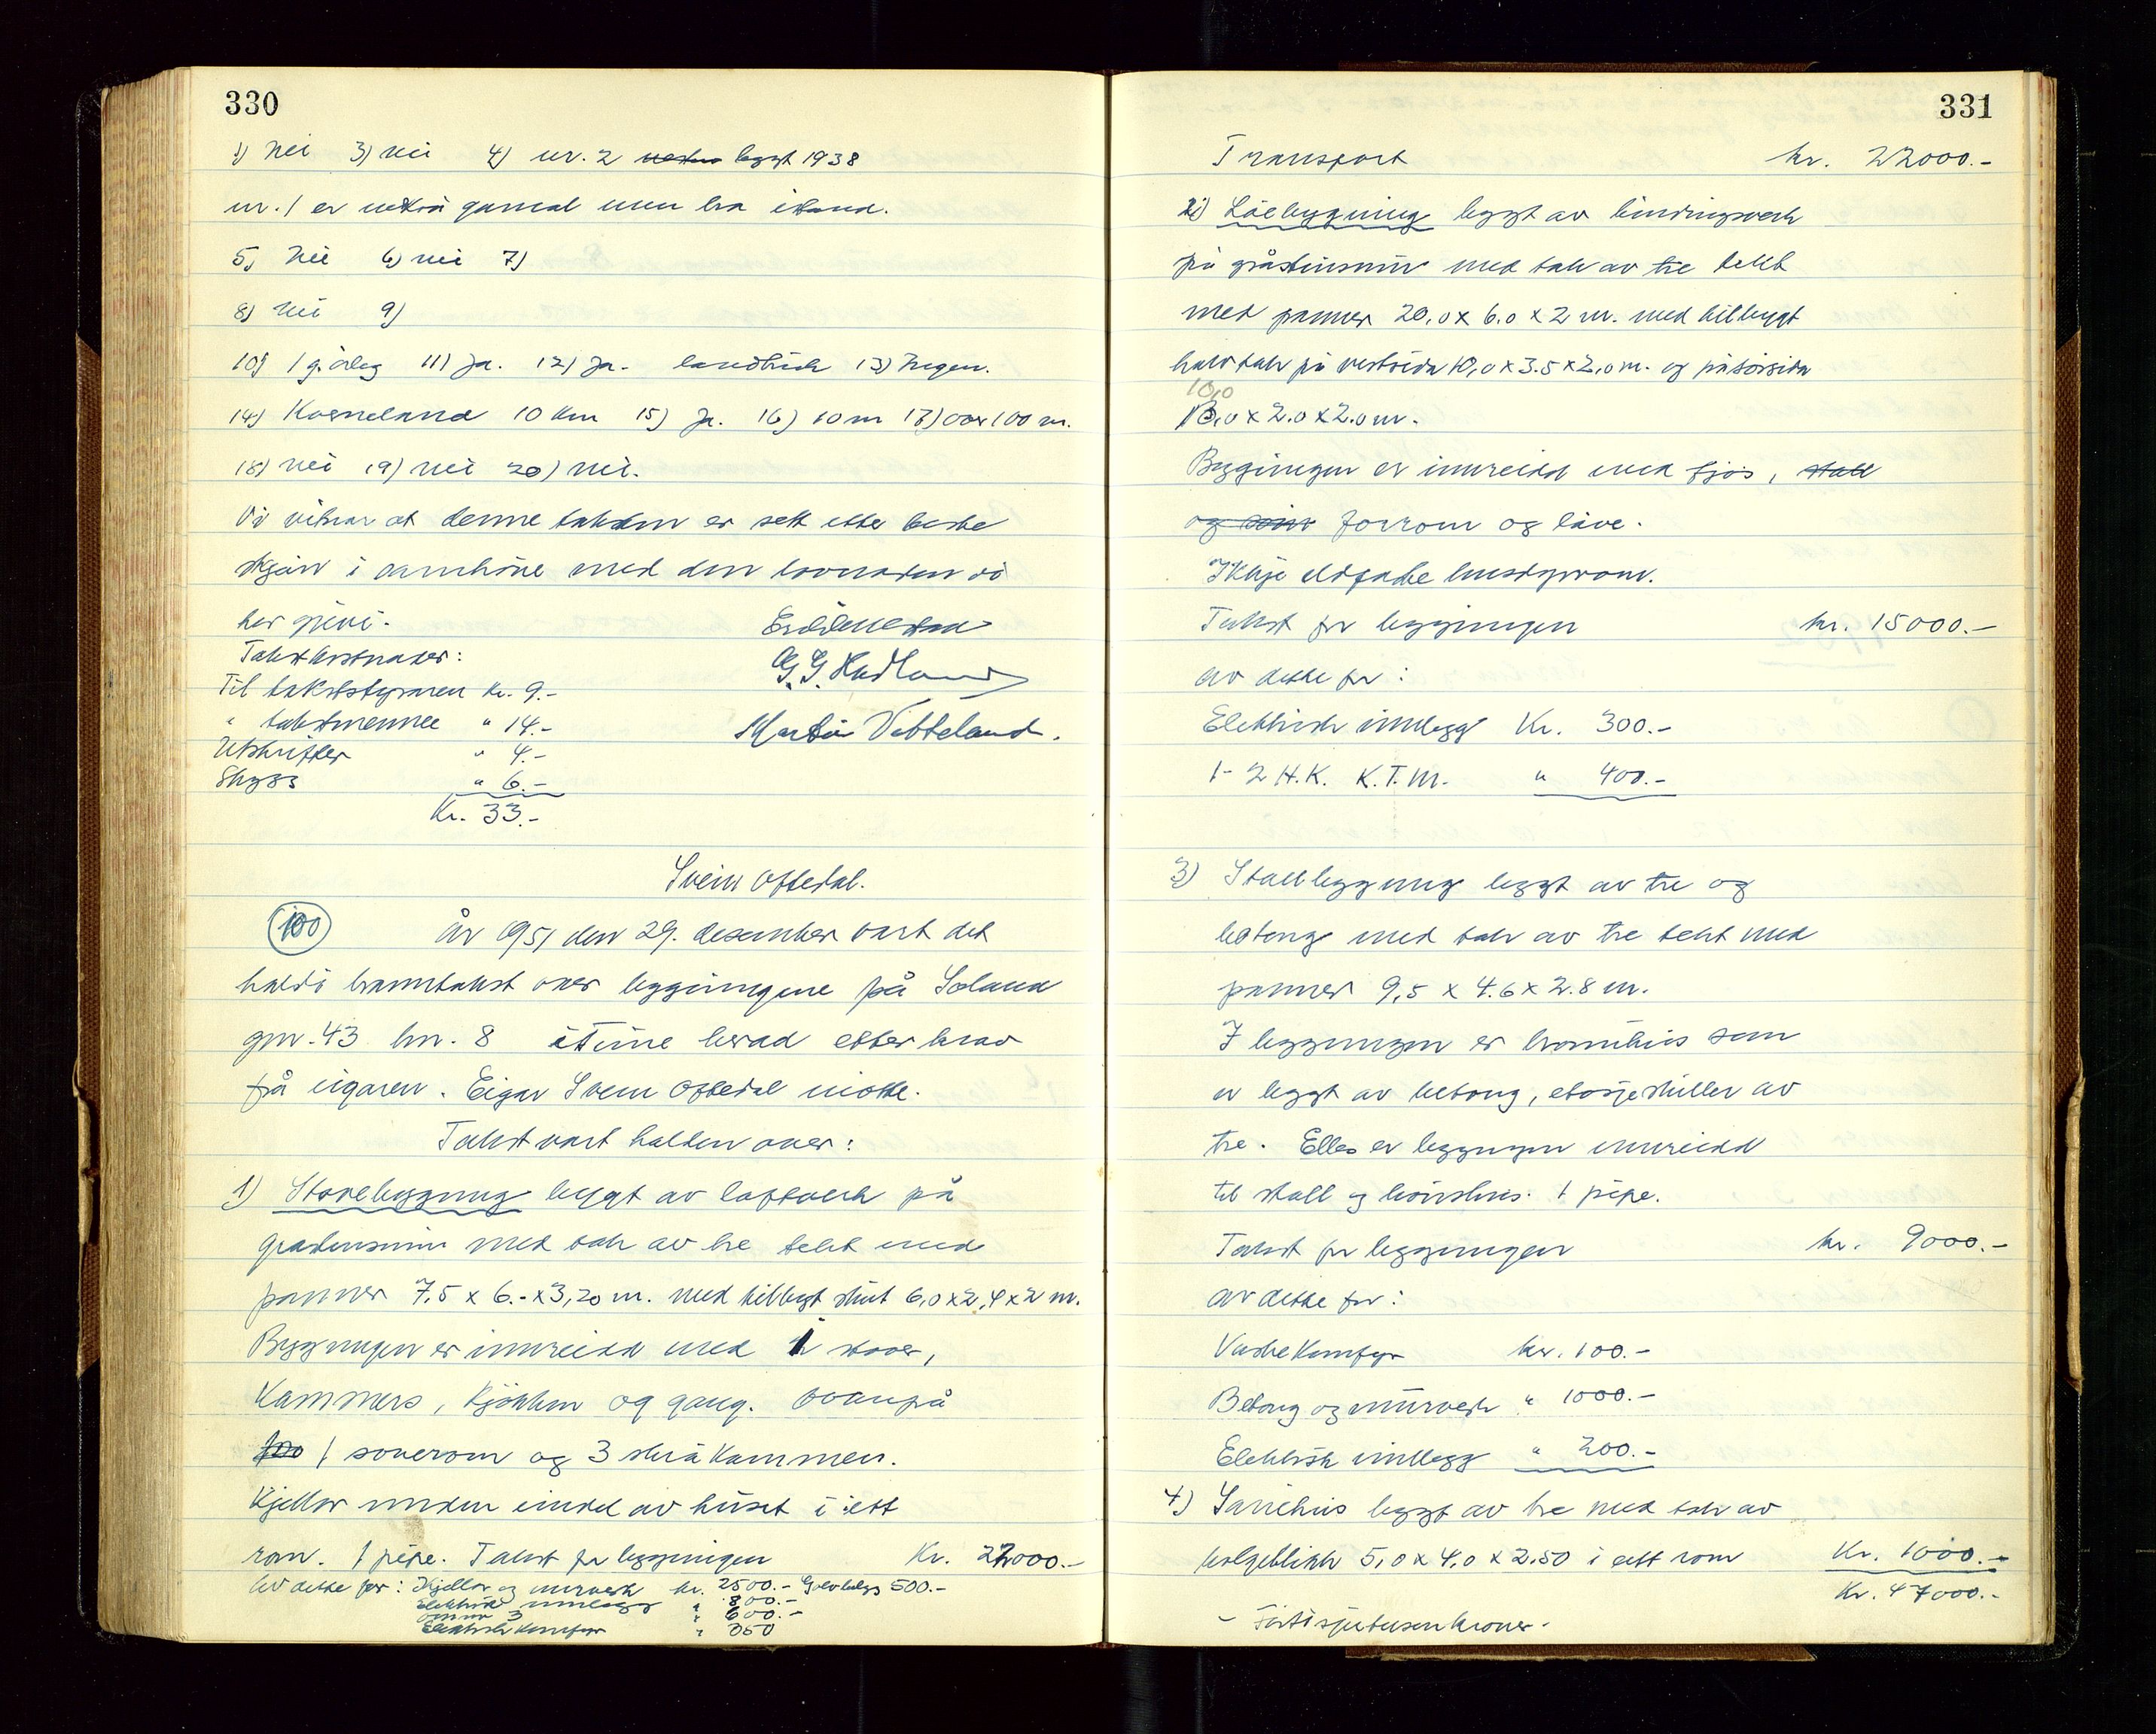 330
1) Nei 3) nei 4) nr. 2 bygt 1938
nr. 1 er gamal men bra istand.
5) Nei 6) nei 7)
8) Nei 9)
10) 1 g. årleg 11) Ja. 12) Ja. landbruk 13) Ingen.
14) Kverneland 10 km 15) Ja. 16) 10 m 17) over 100 m.
18) nei 19) nei 20) nei.
Vi vitnar at denne taksten er sett etter beste
skjøn i samhøve med den lovnaden vi
har gjeve.
Takstkostnader:
G. G. Hadland
Til takststyraren Kr. 9.-
" takstmennene " 14.-
Martin Vetteland.
Utskrifter " 4.-
Skyss " 6.-
Kr. 33.-
Svein Oftedal.
100 År 1951 den 29. desember vart det
haldi branntakst over bygningene på Soland
gnr. 43 bnr. 8 i Time herad etter krav
frå eigaren. Eigar Svein Oftedal møtte.
Takst vart halden over:
1) Stovebygning bygt av laftverk på
gråsteinsmur med tak av tre tekt med
panner 7,5 x 6.- x 3,20 m. med tilbygt skut 6,0 x 2,4 x 2 m.
Bygningen er innreidd med 1 stover,
Kammers, Kjøkken og gang. Ovanpå
1 soverom og 3 skråkammer.
Kjellar under eindel av huset i ett
rom. 1 pipe. Takst for bygningen Kr. 22000.-
Av dette for: Kjellar og murverk kr. 2500.- Golvbelegg 500.-
Elektrisk innlegg " 800.-
Omnar 3 " 600.-
Elektrisk Komfyr " 350
331
Transport kr. 22000.-
2) Löebygning bygt av bindingsverk
på gråsteinsmur med tak av tre tekt
med panner 20,0 x 6,0 x 2 m. med tilbygt
halvtak på vestsida 10,0 x 3.5 x 2,0 m. og på sørsida
10,0
x 2.0 x 2.0 m.
Bygningen er innreidd med fjös, stall
og forrom og låve.
Ikkje eldfarlege husdyrrom.
Takst for bygningen kr. 15000.-
av dette for:
Elektrisk innlegg Kr. 300.-
1- 2 H.K. K.T.M. " 400.-
3) Stallbygning bygt av tre og
betong med tak av tre tekt med
panner 9,5 x 4.6 x 2.8 m.
I bygningen er brannhus som
er bygt av betong, etasjeskiller av
tre. Elles er bygningen innreidd
til stall og hönsehus. 1 pipe.
Takst for bygningen kr. 9000.-
av dette for:
Vaskekomfyr kr. 100.-
Betong og murverk " 1000.-
Elektrisk innlegg " 200.-
4) hus bygt av tre med tak av
bølgeblikk 5,0 x 4,0 x 2.50 i ett rom Kr. 1000.-
Kr. 47000.-
- Førtisjutusen kroner -